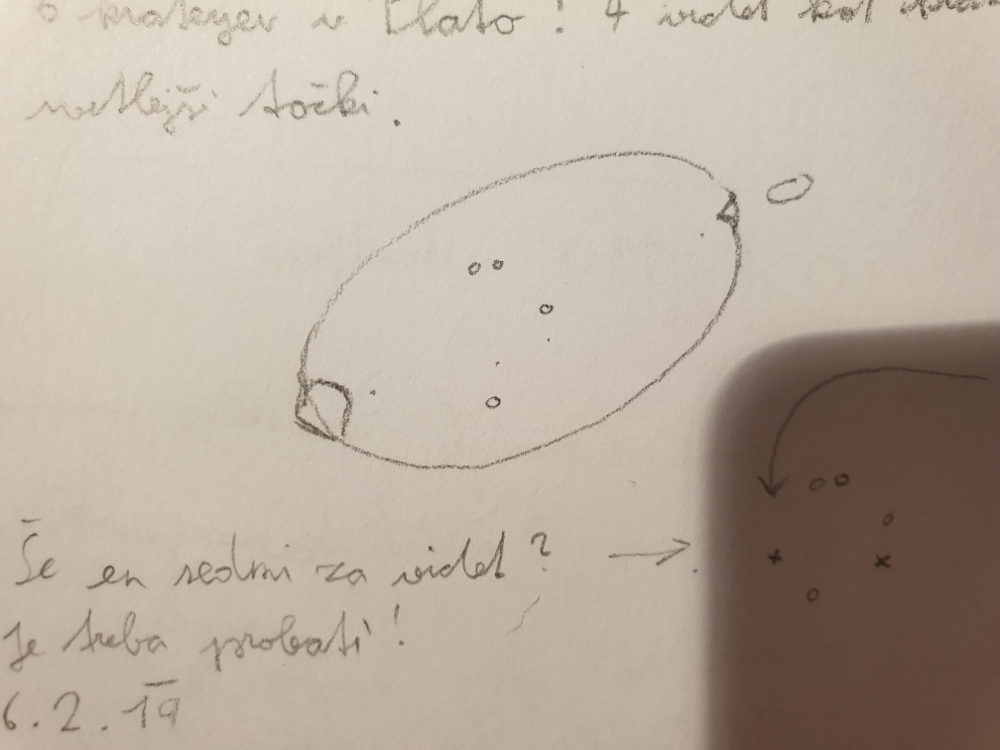 6 kraterjev v Plato! 4 videl kot
svetlejši točki.
Še en sedmi za videt? →
Je treba probati!
6.2.19